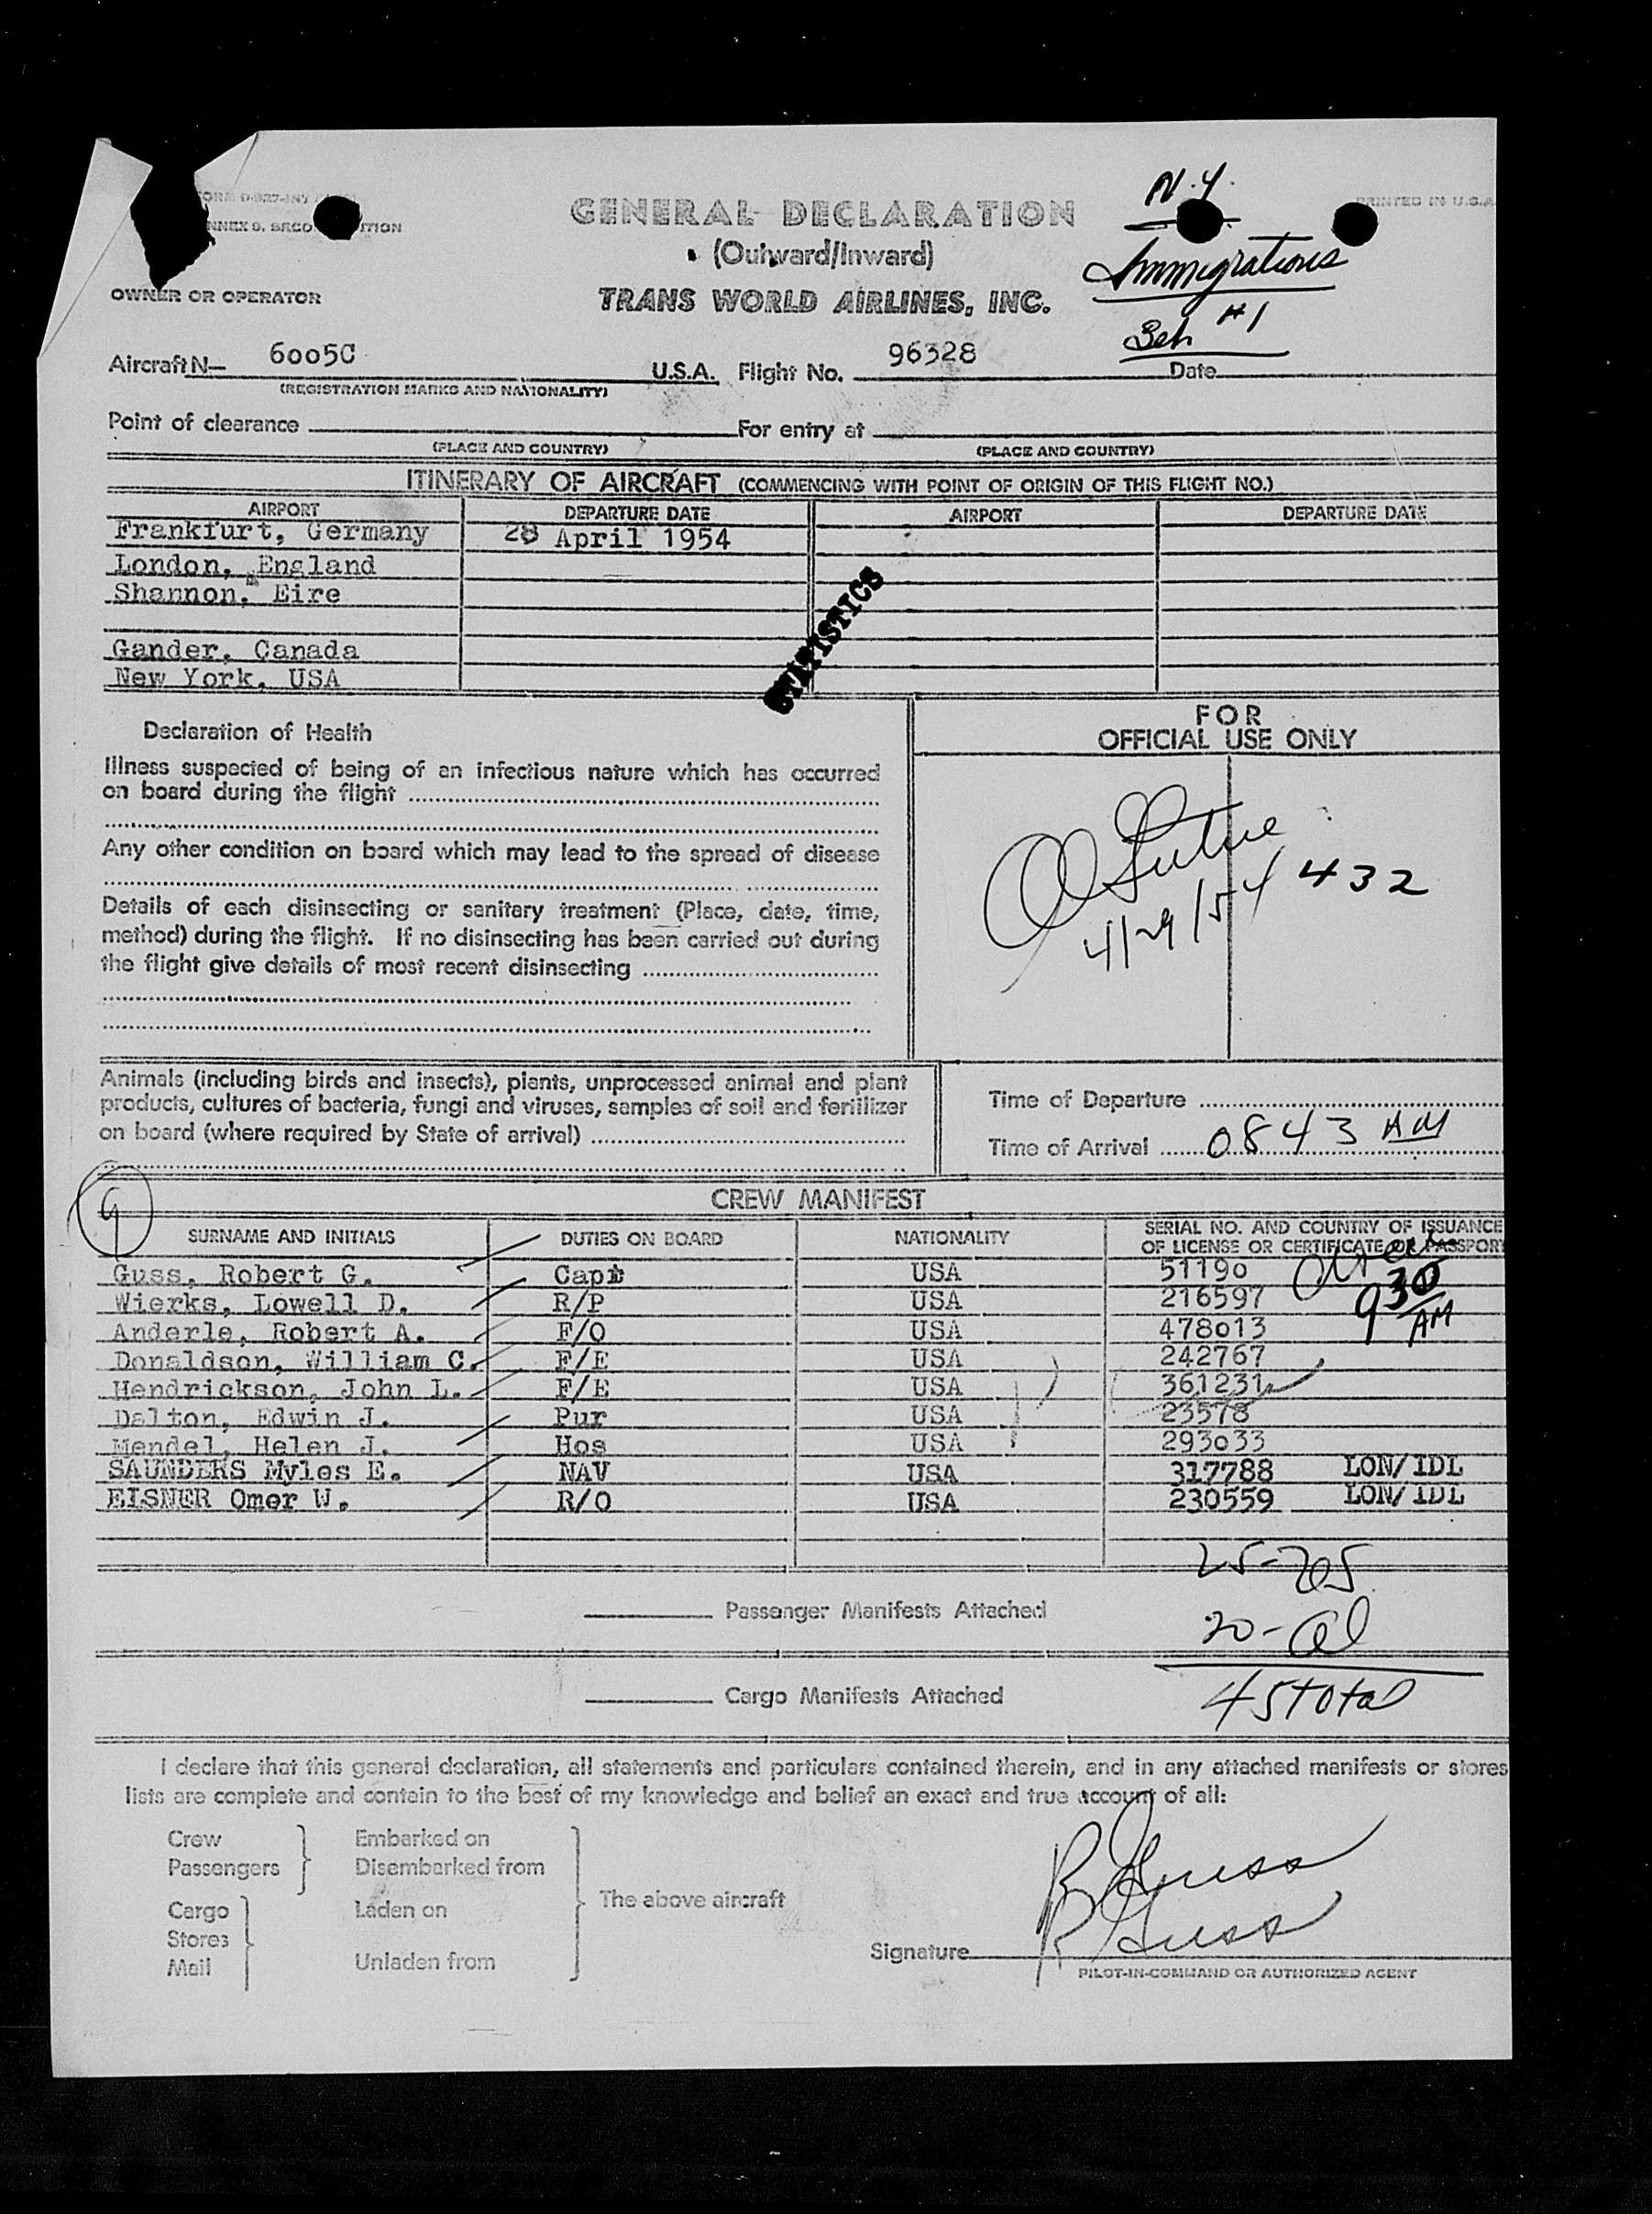 N.Y.
PRINTED IN U.S.A.
GENERAL DECLARATION
(Outward/Inward)
Immigrations
OWNER OR OPERATOR
TRANS WORLD AIRLINES, INC.
#1
Aircraft N— 6005C U.S.A. Flight No. 96328 Date
(REGISTRATION MARKS AND NATIONALITY)
Point of clearance For entry at
(PLACE AND COUNTRY) (PLACE AND COUNTRY)
ITINERARY OF AIRCRAFT (COMMENCING WITH POINT OF ORIGIN OF THIS FLIGHT NO.)
AIRPORT DEPARTURE DATE AIRPORT DEPARTURE DATE
Frankfurt, Germany 28 April 1954
London, England
Shannon, Eire
STATISTICS
Gander, Canada
New York, USA
Declaration of Health
FOR
OFFICIAL USE ONLY
Illness suspected of being of an infectious nature which has occurred
on board during the flight
Any other condition on board which may lead to the spread of disease
4/29/54 432
Details of each disinsecting or sanitary treatment (Place, date, time,
method) during the flight. If no disinsecting has been carried out during
the flight give details of most recent disinsecting
Animals (including birds and insects), plants, unprocessed animal and plant
products, cultures of bacteria, fungi and viruses, samples of soil and fertilizer
on board (where required by State of arrival)
Time of Departure
Time of Arrival 0843 AM
9
CREW MANIFEST
SURNAME AND INITIALS DUTIES ON BOARD NATIONALITY SERIAL NO. AND COUNTRY OF ISSUANCE
OF LICENSE OR CERTIFICATE OR PASSPORT
Guss, Robert G. Capt USA 51190
Wierks, Lowell D. R/P USA 216597 930 AM
Anderle, Robert A. F/O USA 478013
Donaldson, William C. F/E USA 242767
Hendrickson, John L. F/E USA 361231
Dalton, Edwin J. Pur USA 23578
Mendel, Helen J. Hos USA 293033
SAUNDERS Myles E. NAV USA 317788 LON/IDL
EISNER Omer W. R/O USA 230559 LON/IDL
Passenger Manifests Attached
20-al
Cargo Manifests Attached
45 total
I declare that this general declaration, all statements and particulars contained therein, and in any attached manifests or stores
lists are complete and contain to the best of my knowledge and belief an exact and true account of all:
Crew Embarked on
Passengers Disembarked from
Cargo Laden on The above aircraft
Stores
Mail Unladen from
R Guss
Signature R Guss
PILOT-IN-COMMAND OR AUTHORIZED AGENT